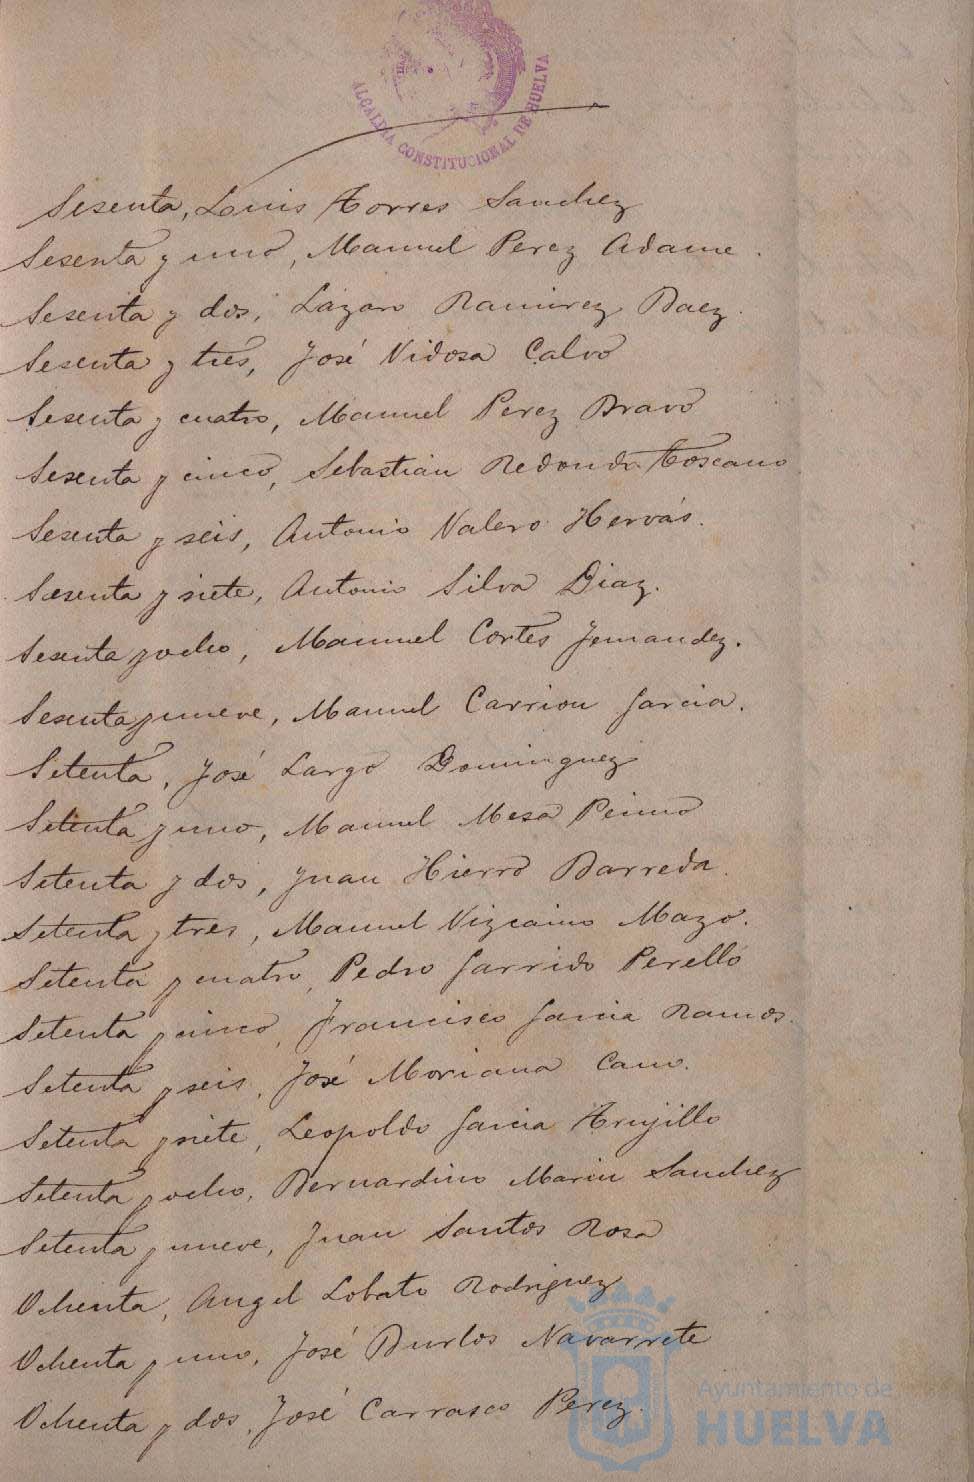 ALCALDIA CONSTITUCIONAL DE HUELVA
Sesenta, Luis Torres Sanchez
Sesenta y uno, Manuel Perez Adame.
Sesenta y dos, Lázaro Ramirez Baez.
Sesenta y tres, José Vidosa Calvo
Sesenta y cuatro, Manuel Perez Bravo
Sesenta y cinco, Sebastián Redondo Toscano
Sesenta y seis, Antonio Valero Hervás.
Sesenta y siete, Antonio Silva Diaz.
Sesenta y ocho, Manuel Cortés Fernandez.
Sesenta y nueve, Manuel Carrion Garcia.
Setenta, José Largo Dominguez
Setenta y uno, Manuel Mesa
Setenta y dos, Juan Hierro Barreda.
Setenta y tres, Manuel Vizcaino Mazo.
Setenta y cuatro, Pedro Garrido Perelló
Setenta y cinco, Francisco Garcia Ramos.
Setenta y seis, José Moriana Cano.
Setenta y siete, Leopoldo Garcia Trujillo
Setenta y ocho, Bernardino Marin Sanchez
Setenta y nueve, Juan Santos Rosa
Ochenta, Angel Lobato Rodriguez
Ochenta y uno, José Burlos Navarrete
Ochenta y dos, José Carrasco Perez.
Ayuntamiento de
HUELVA